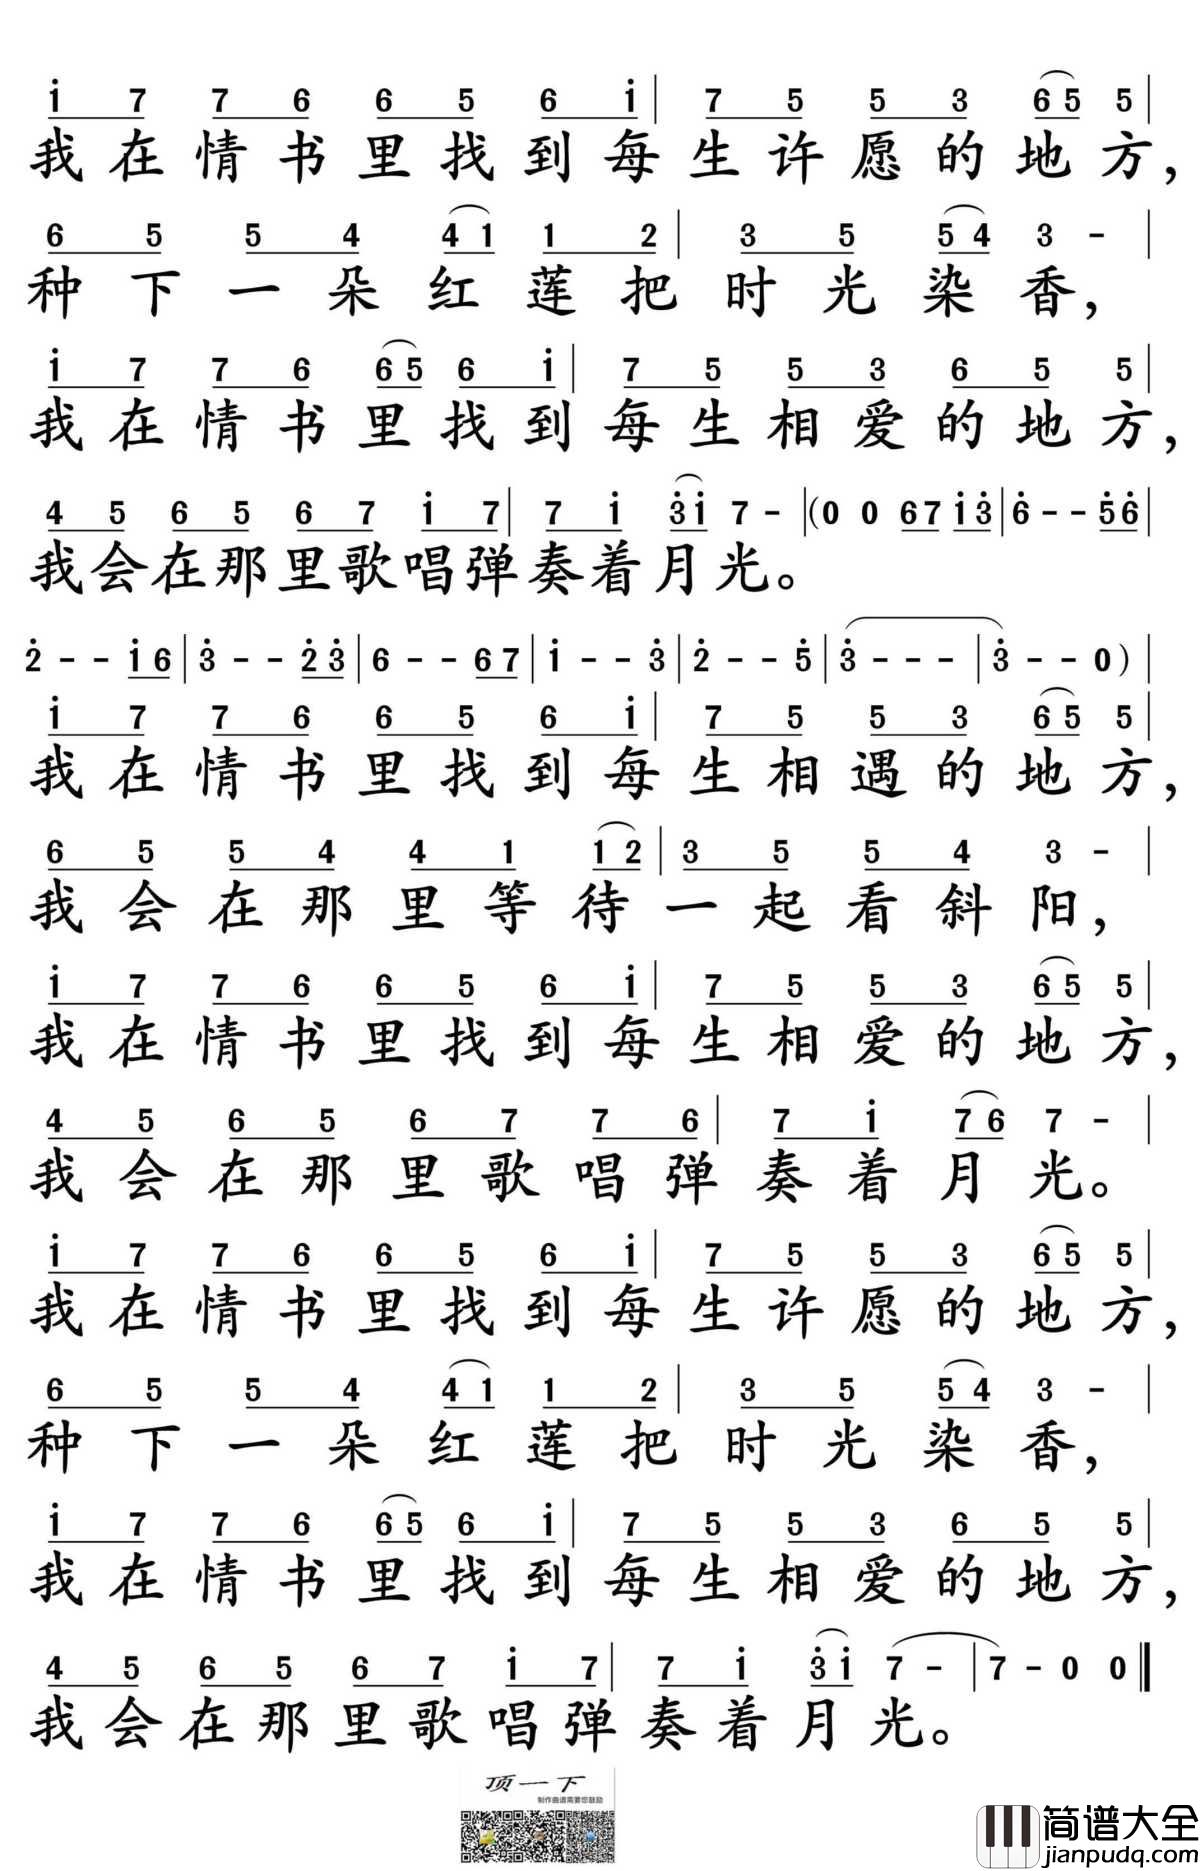 i 7 7 6 6 5 6 i | 7 5 5 3 6 5 5 |
我在情书里找到每生许愿的地方，
6 5 5 4 4 1 1 2 | 3 5 5 4 3 - |
种下一朵红莲把时光染香，
i 7 7 6 6 5 6 i | 7 5 5 3 6 5 5 |
我在情书里找到每生相爱的地方，
4 5 6 5 6 7 i 7 | 7 i 3̇ i 7 - | (0 0 6 7 i 3̇ | 6̇ - - 5̇ 6̇ |
我会在那里歌唱弹奏着月光。
2̇ - - i 6 | 3̇ - - 2̇ 3̇ | 6 - - 6 7 | i - - 3̇ | 2̇ - - 5̇ | 3̇ - - - | 3̇ - - 0 ) |
i 7 7 6 6 5 6 i | 7 5 5 3 6 5 5 |
我在情书里找到每生相遇的地方，
6 5 5 4 4 1 1 2 | 3 5 5 4 3 - |
我会在那里等待一起看斜阳，
i 7 7 6 6 5 6 i | 7 5 5 3 6 5 5 |
我在情书里找到每生相爱的地方，
4 5 6 5 6 7 7 6 | 7 i 7 6 7 - |
我会在那里歌唱弹奏着月光。
i 7 7 6 6 5 6 i | 7 5 5 3 6 5 5 |
我在情书里找到每生许愿的地方，
6 5 5 4 4 1 1 2 | 3 5 5 4 3 - |
种下一朵红莲把时光染香，
i 7 7 6 6 5 6 i | 7 5 5 3 6 5 5 |
我在情书里找到每生相爱的地方，
4 5 6 5 6 7 i 7 | 7 i 3̇ i 7 - | 7 - 0 0 ‖
我会在那里歌唱弹奏着月光。
顶一下
制作曲谱需要您鼓励
简谱大全
jianpudq.com